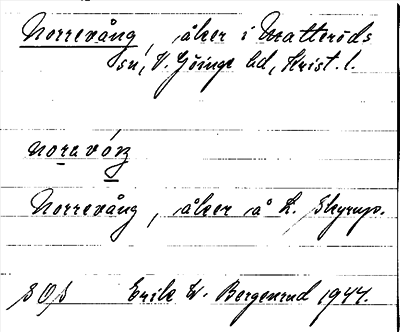 Norrevång, åker i Matteröds
sn, V. Göinge hd, Krist. l.
noravóŋ
Norrevång, åker å L. Skyrup.
SOS Erik W. Bergenrud 1944.